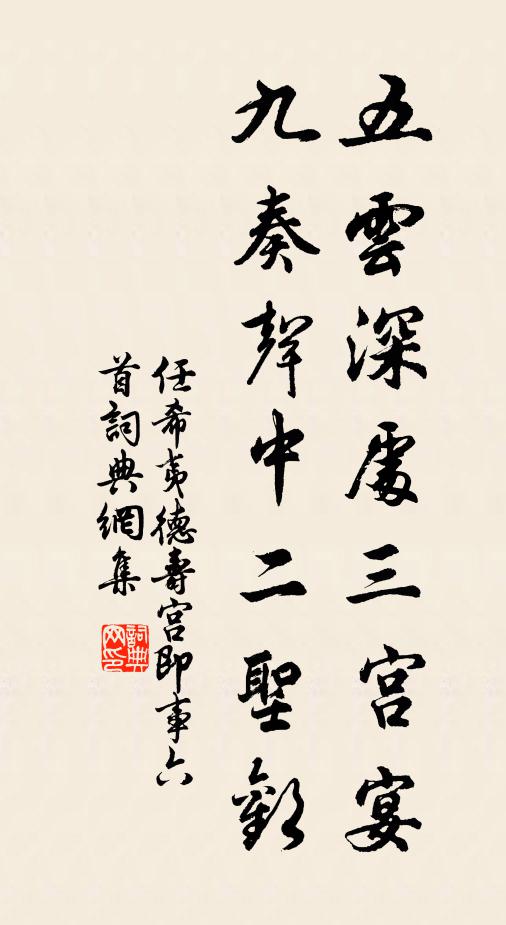 五雲深處三宮宴
九奏聲中二聖歡
任希夷德壽宮即事六
首詞典網集
詞典網印